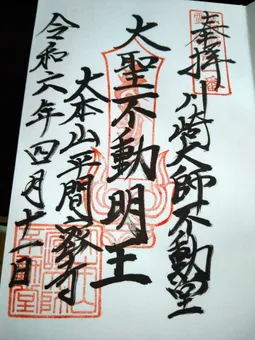 奉拝 川崎大師不動堂
大聖不動明王
大本山平間寺
令和六年四月十一日